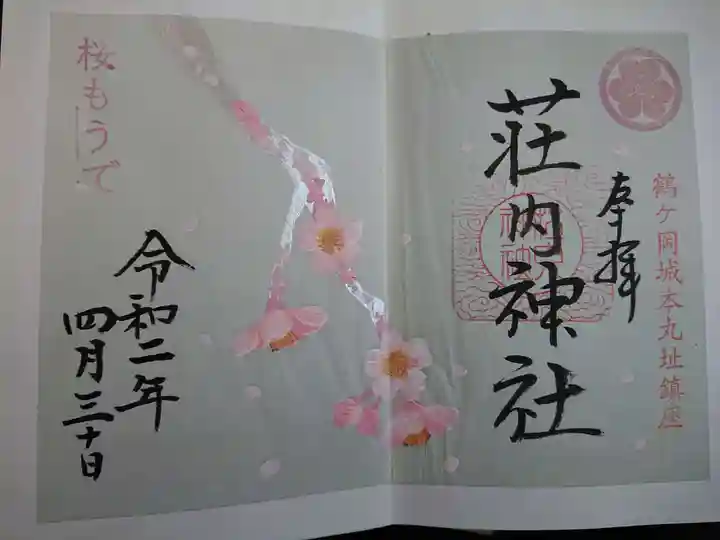 鶴ケ岡城本丸址鎮座
奉拝
荘内神社
桜もうで
令和二年
四月三十日